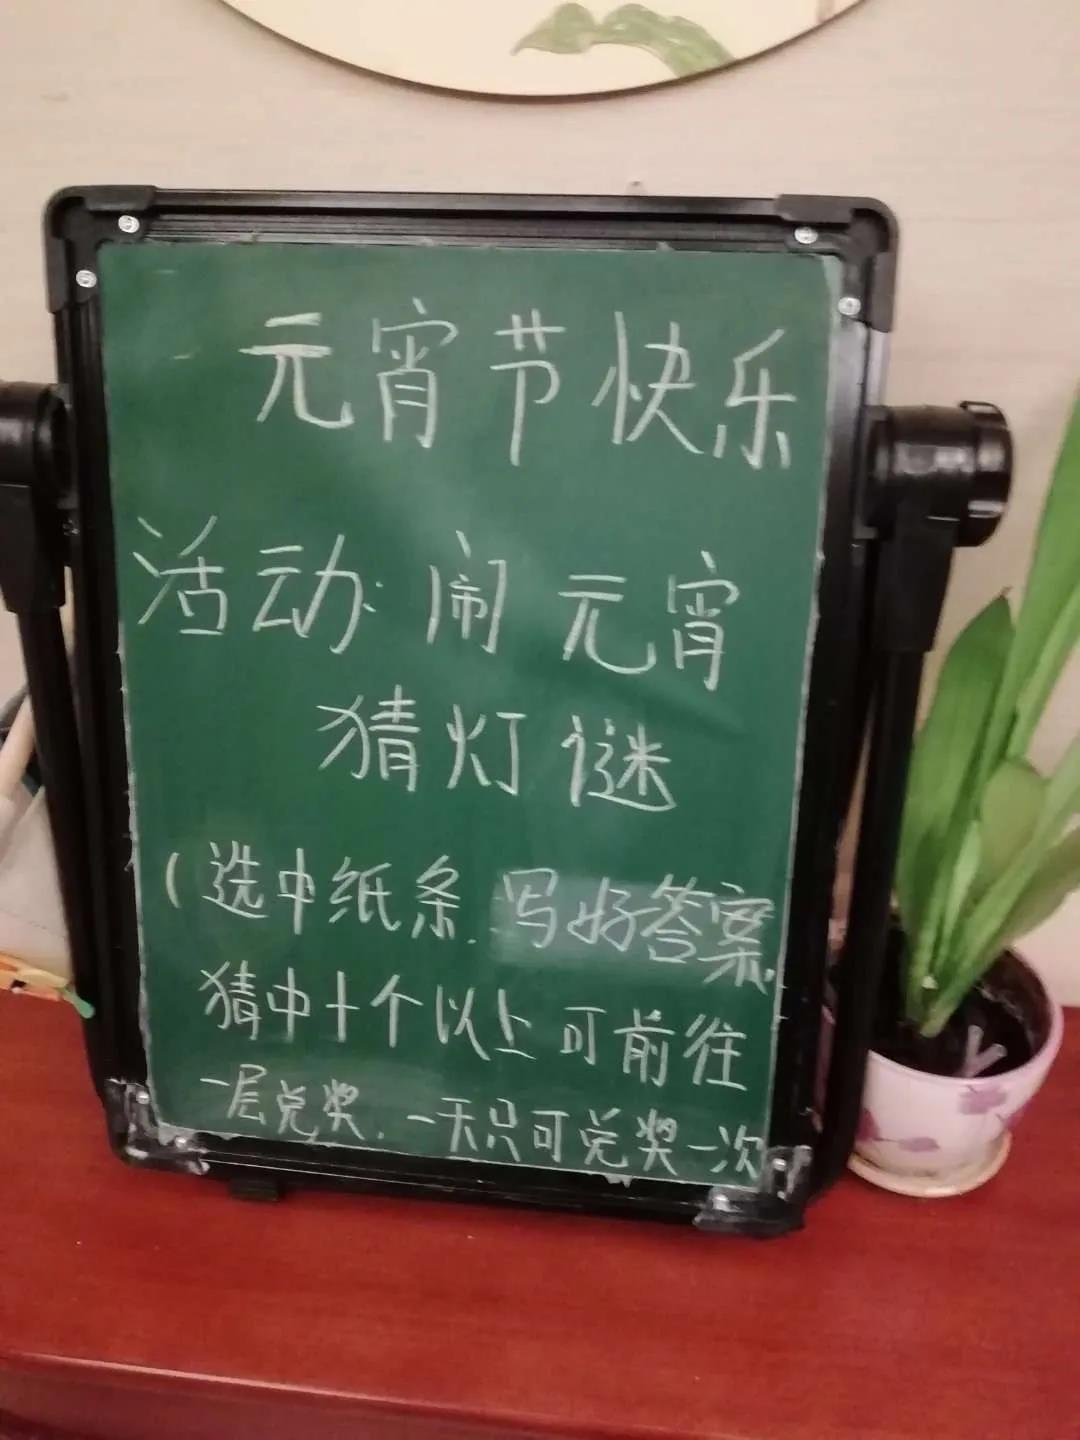 元宵节快乐
活动:闹元宵
猜灯谜
(选中纸条.写好答案.
猜中十个以上可前往
一层兑奖.一天只可兑奖一次